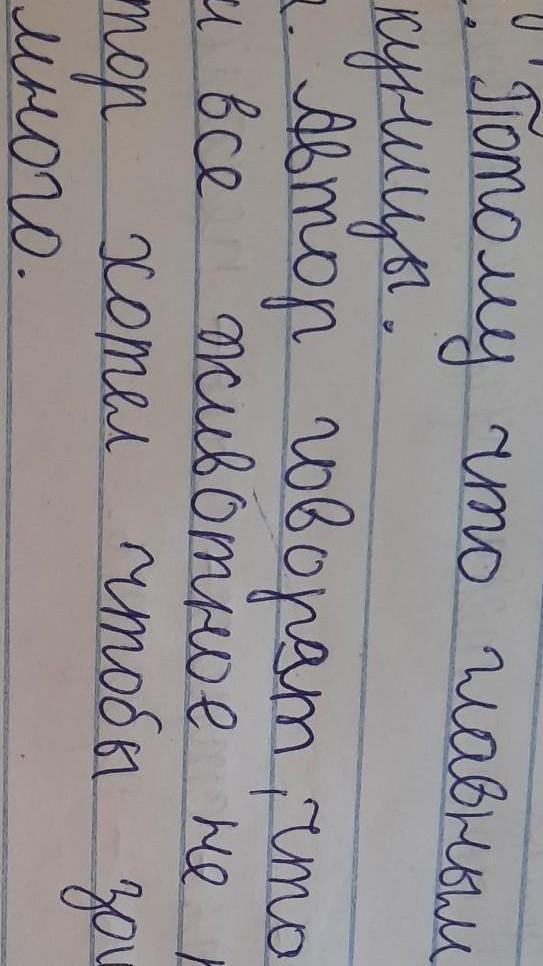 Потому что главным
куницы.
Автор говорят, что
и все животное не
тор хотел чтобы
много.